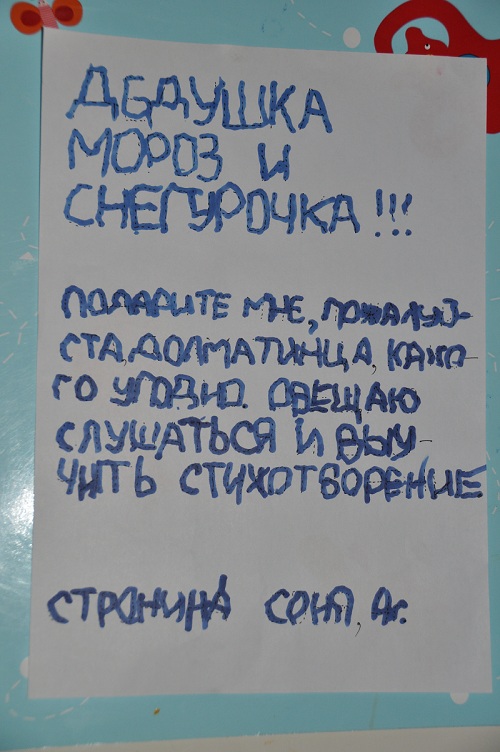 ДЕДУШКА
МОРОЗ И
СНЕГУРОЧКА!!!
ПОДАРИТЕ МНЕ, ПОЖАЛУЙ-
СТА, ДОЛМАТИНЦА, КАКО-
ГО УГОДНО. ОБЕЩАЮ
СЛУШАТЬСЯ И ВЫУ-
ЧИТЬ СТИХОТВОРЕНИЕ
СТРОНИНА СОНЯ, 4г.